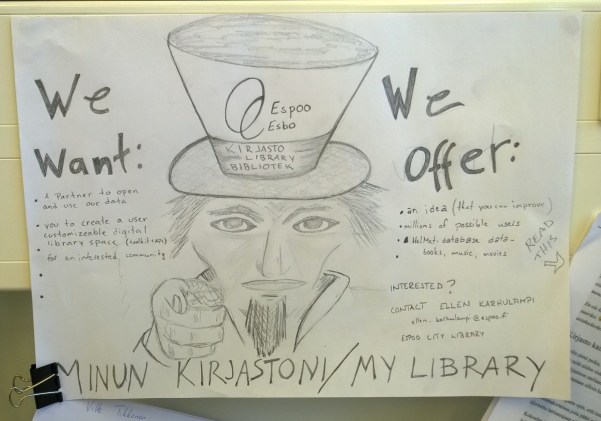 We
Want:
• A Partner to open
and use our data
• you to create a user
customizeable digital
library space (toolkit+API)
• for an interested community
•
•
Espoo
Esbo
KIRJASTO
LIBRARY
BIBLIOTEK
We
Offer:
• an idea (that you can improve)
• millions of possible users
• HelMet-database data-
• books, music, movies
READ
THIS
INTERESTED?
CONTACT ELLEN KARHULAMPI
ellen.karhulampi@espoo.fi
ESPOO CITY LIBRARY
MINUN KIRJASTONI/MY LIBRARY
Ville